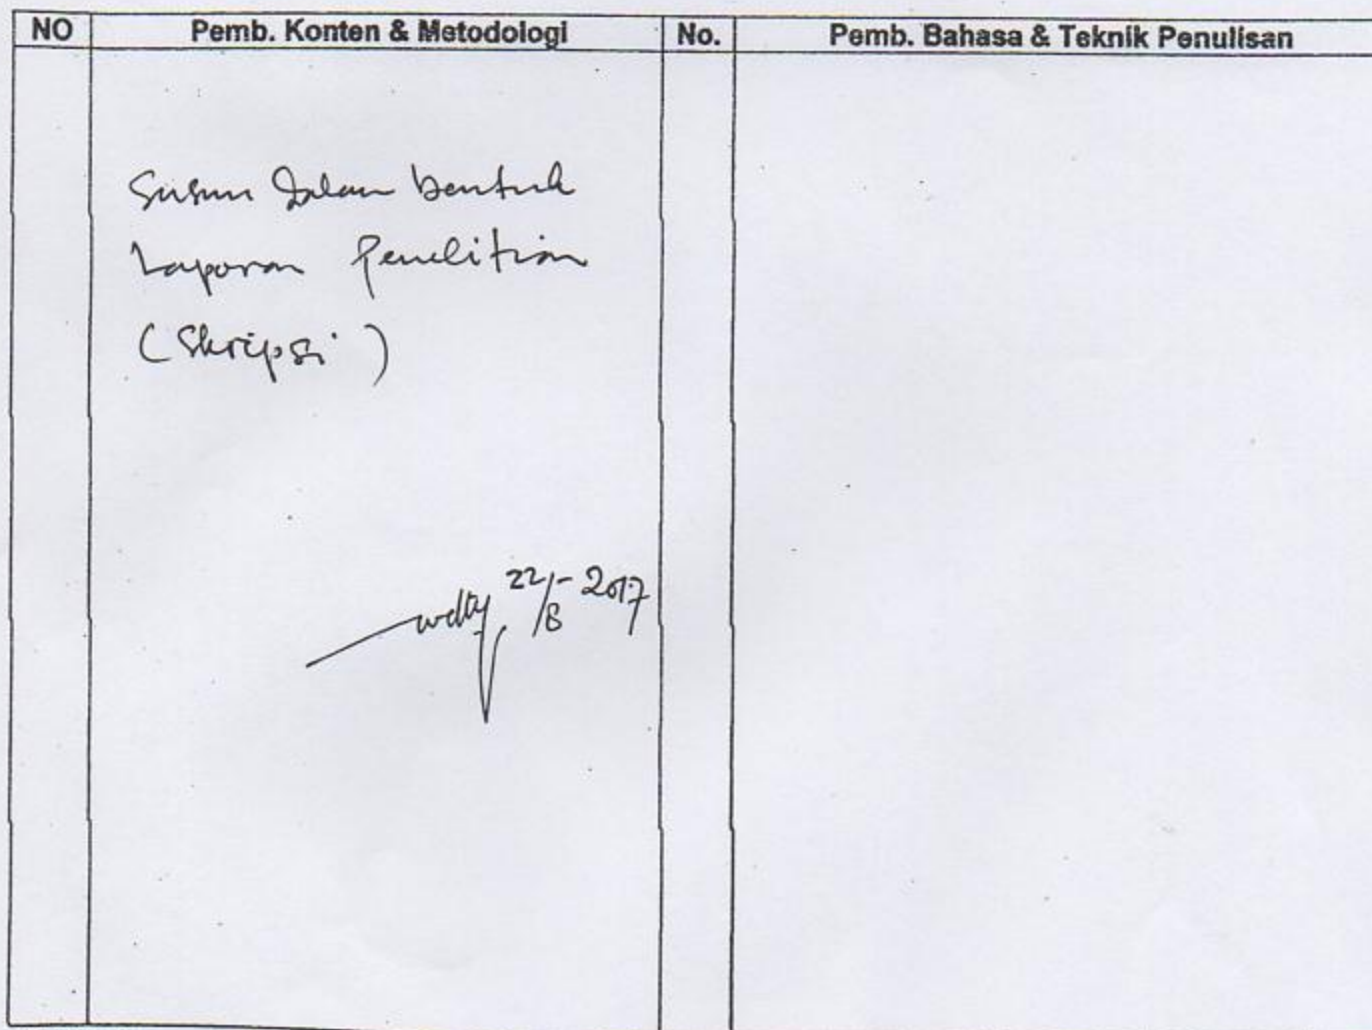 NO Pemb. Konten & Metodologi No. Pemb. Bahasa & Teknik Penulisan
Susun dalam bentuk
Laporan Penelitian
(Skripsi)
22/8 - 2017